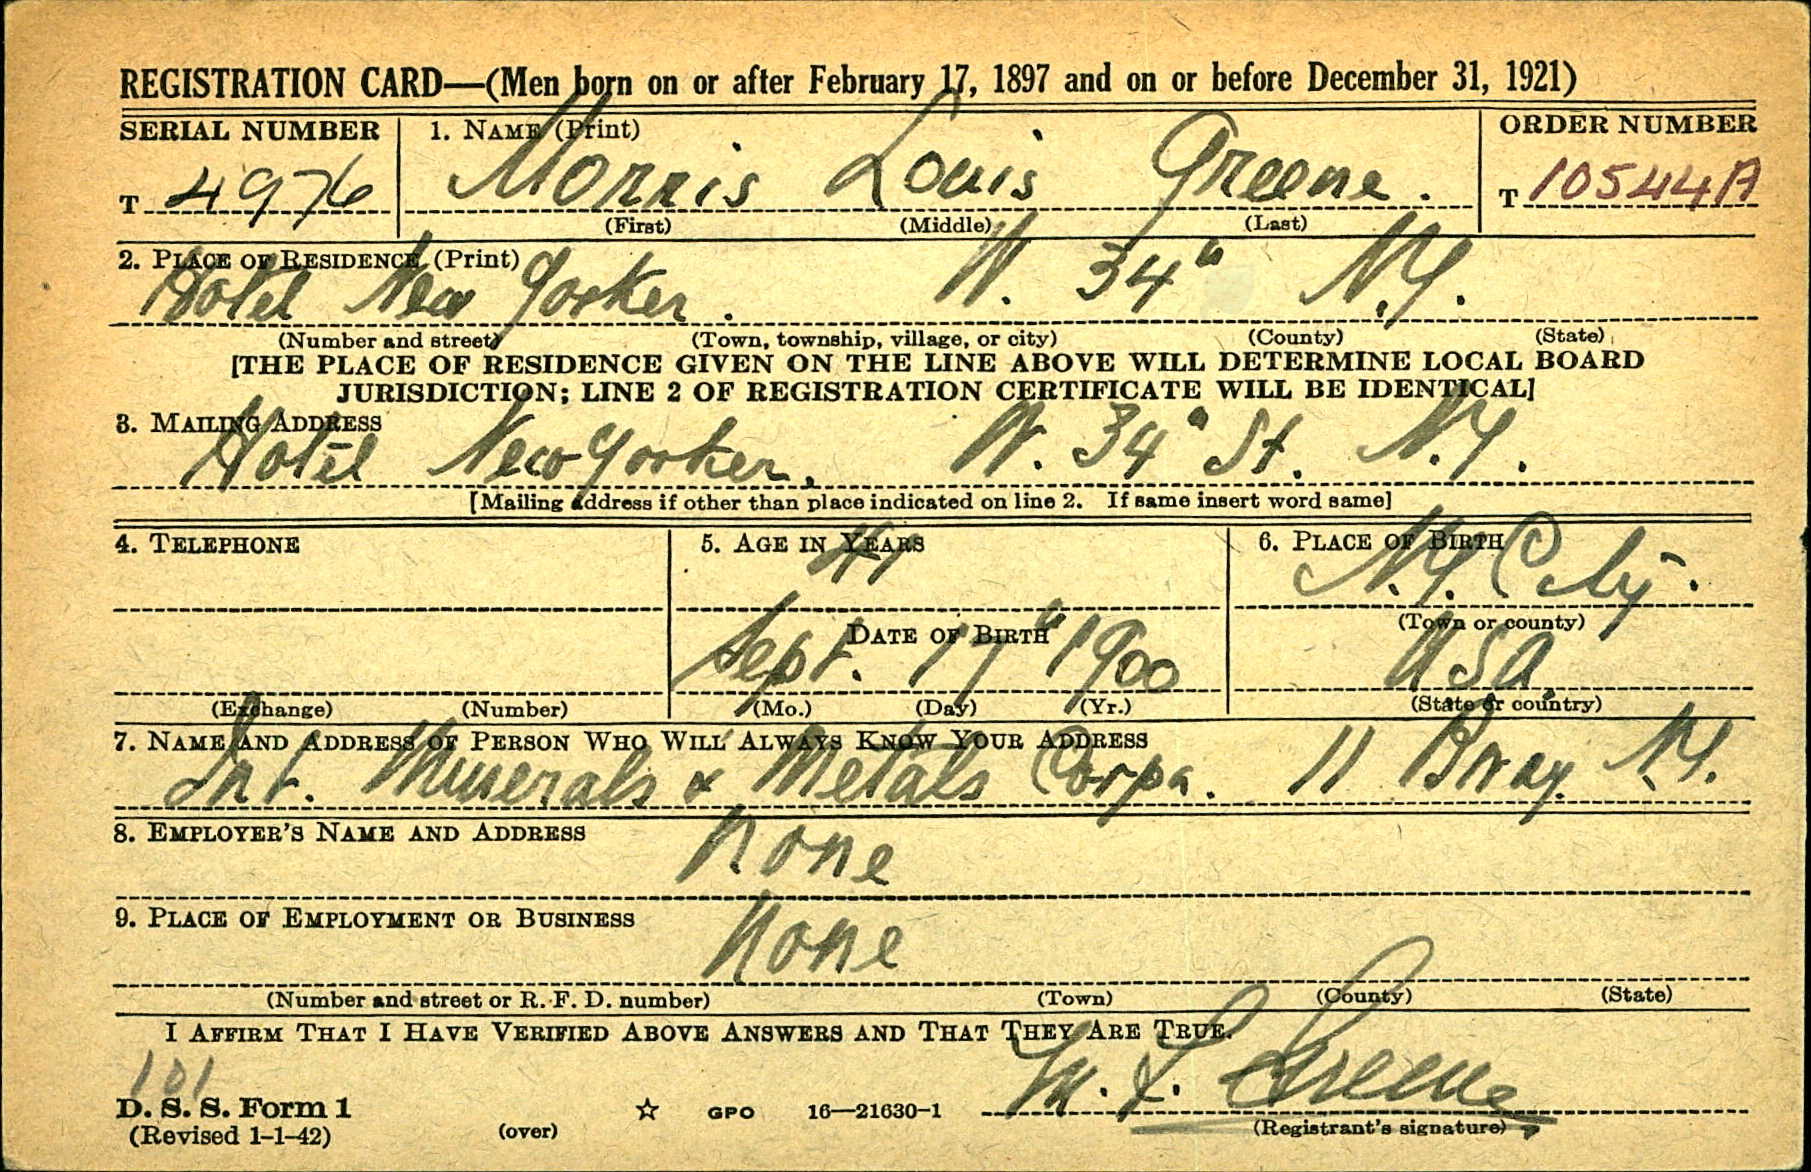 REGISTRATION CARD—(Men born on or after February 17, 1897 and on or before December 31, 1921)
SERIAL NUMBER 1. NAME (Print) ORDER NUMBER
T 4976 Morris Louis Greene. T 10544A
(First) (Middle) (Last)
2. PLACE OF RESIDENCE (Print)
Hotel New Yorker. W. 34" N.Y.
(Number and street) (Town, township, village, or city) (County) (State)
[THE PLACE OF RESIDENCE GIVEN ON THE LINE ABOVE WILL DETERMINE LOCAL BOARD
JURISDICTION; LINE 2 OF REGISTRATION CERTIFICATE WILL BE IDENTICAL]
3. MAILING ADDRESS
Hotel New Yorker, W. 34" St. N.Y.
[Mailing address if other than place indicated on line 2. If same insert word same]
4. TELEPHONE 5. AGE IN YEARS 6. PLACE OF BIRTH
41 N.Y. City.
(Town or county)
DATE OF BIRTH
Sept. 17" 1900 USA.
(Exchange) (Number) (Mo.) (Day) (Yr.) (State or country)
7. NAME AND ADDRESS OF PERSON WHO WILL ALWAYS KNOW YOUR ADDRESS
Int. Minerals & Metals Corpn. 11 Bway N.Y.
8. EMPLOYER'S NAME AND ADDRESS
None
9. PLACE OF EMPLOYMENT OR BUSINESS
None
(Number and street or R. F. D. number) (Town) (County) (State)
I AFFIRM THAT I HAVE VERIFIED ABOVE ANSWERS AND THAT THEY ARE TRUE.
101
D. S. S. Form 1 ☆ GPO 16—21630-1 M. L. Greene
(Revised 1-1-42) (over) (Registrant's signature)